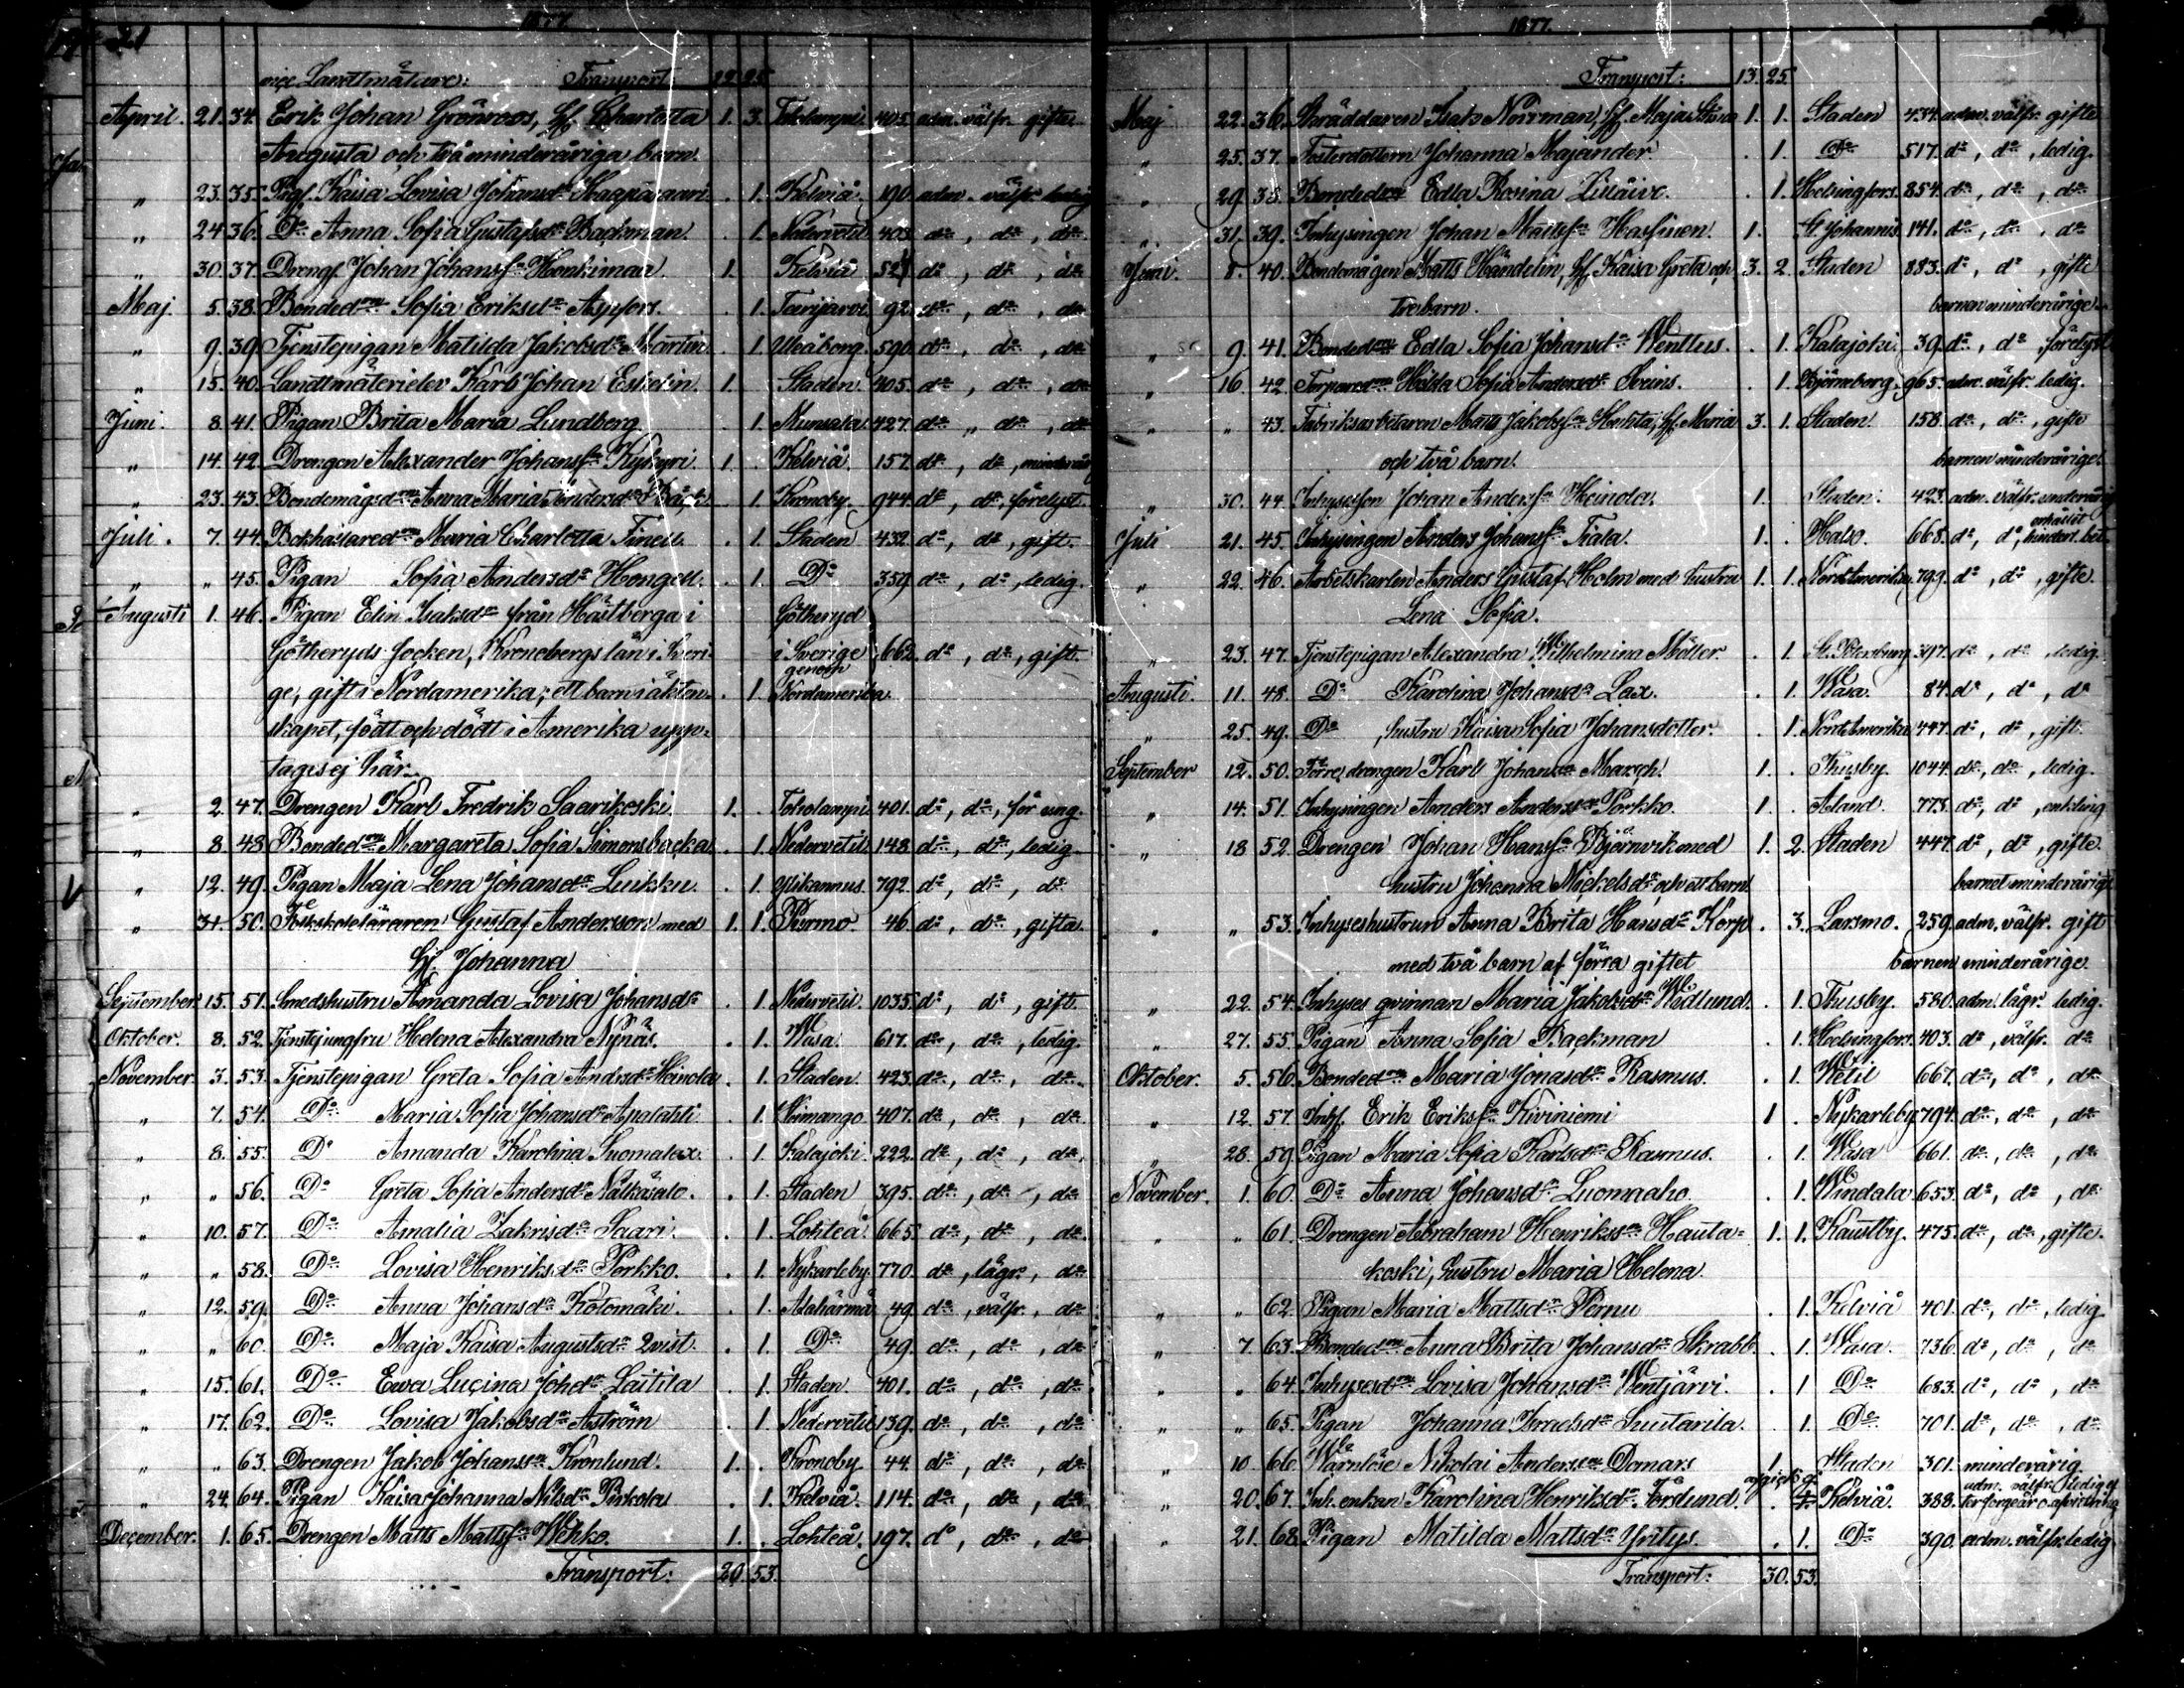 21 1877.
vice Landtmätare: Transport:
April. 21. 34. Erik Johan Grönroos, Hf. Charlotta 1. 3. Toholampi. 405. adm. välfr. gifta
Augusta och två minderåriga barn.
" 23. 35. Pigf. Kaisa Lovisa Johansdr . 1. Kelviå. 190. adm. välfr. ledig
" 24. 36. Do Anna Sofia Gustafsdr Backman. . 1. Nedervetil 403. do, do, do
" 30. 37. Drengf. Johan Johansson 1. Kelviå 521 do, do, do
Maj. 5. 38. Bondedn Sofia Eriksdr Aspfors. . 1. 92. do, do, do
" 9. 39. Tjenstepigan Matilda Jakobsdr Martin. . 1. Uleåborg. 590. do, do, do
" 15. 40. Landtmäterielev Karl Johan Eskelin. 1. Staden. 405. do, do, do
Juni. 8. 41. Pigan Brita Maria Lundberg . 1. Munsala. 427. do " do, do
" 14. 42. Drengen Alexander Johansson Kyhyri. 1. Kelviå. 157. do, do, minderårig
" 23. 43. Bondemågsdn Anna Maria Andersdr . 1. Kronoby. 944. do, do, förelyst.
Juli. 7. 44. Bokhållaredn Maria Charlotta . 1. Staden 432. do, do, gift.
" " 45. Pigan Sofia Andersdr Hongell. . 1. Do 359. do, do, ledig.
Augusti 1. 46. Pigan Elin Isaksdr från Hästberga i Götheryd
Götheryds Socken, Kronobergs län i Sveri- i Sverige 662. do, do, gift.
genom
ge, gift i Nordamerika; ett barn i äkten- . 1. Nordamerika
skapet, född och dödt i Amerika upp-
tages ej här.
" 2. 47. Drengen Karl Fredrik Saarikoski. 1. Toholampi. 401. do, do, för ung.
" 8. 48. Bondedn Margareta Sofia Simonsbacka . 1. Nedervetil 148. do, do, ledig.
" 12. 49. Pigan Maja Lena Johansdr Luikku. . 1. Ylikannus. 792. do, do, do
" 31. 50. Folkskoleläraren Gustaf Andersson med 1. 1. Purmo. 46. do, do, gifta
Hf. Johanna
September. 15. 51. Smedshustru Amanda Lovisa Johansdr . 1. Nedervetil. 1035. do, do, gift.
Oktober. 8. 52. Tjenstejungfru Helena Alexandra Nynäs. . 1. Wasa. 617. do, do, ledig.
November. 3. 53. Tjenstepigan Greta Sofia Andersdr Heinola . 1. Staden. 423. do, do, do
" 7. 54. Do Maria Sofia Johansdr . 1. Himango 407. do, do, do
" 8. 55. Do Amanda Karolina . 1. Kalajoki. 222. do, do, do.
" " 56. Do Greta Sofia Andersdr . 1. Staden 395. do, do, do
" 10. 57. Do Amalia Zakrisdr Saari. . 1. Lohteå. 665. do, do, do
" " 58. Do Lovisa Henriksdr Porkko. . 1. Nykarleby. 770. do, lägr., do
" 12. 59. Do Anna Johansdr Kotomäki. . 1. Alahärmä 49. do, välfr., do
" " 60. Do Maja Kaisa Augustsdr Qvist. . 1. Do 49. do, do, do
" 15. 61. Do Ewa Lucina Johdr Laitila . 1. Staden. 401. do, do, do
" 17. 62. Do Lovisa Jakobsdr Åström . 1. Nedervetil 139. do, do, do
" " 63. Drengen Jakob Johansson Kronlund. 1. Kronoby. 44. do, do, do
" 24. 64. Pigan Kaisa Johanna Nilsdr Pirkola . 1. Kelviå. 114. do, do, do
December. 1. 65. Drengen Matts Mattsson Wehko. 1. Lohteå. 197. do, do, do
Transport: 20. 53.
1877.
Transport: 13. 25.
Maj 22. 36. Skräddaren Isak Norrman, Hf. Maja Stina 1. 1. Staden 434. adm. välfr. gifte
" 25. 37. Fosterdottern Johanna Majander. . 1. Do 517. do, do, ledig.
" 29. 38. Bondedn Edla Rosina . 1. Helsingfors. 854. do, do, do
" 31. 39. Inhysingen Johan Mattsson Hassinen. 1. St Johannis 141. do, do, do
Juni. 8. 40. Bondemågen Matts Händelin, Hf. Kaisa Greta och 3. 2. Staden 883. do, do, gifte
tre barn. barnen minderårige.
" 9. 41. Bondedn Edla Sofia Johansdr Wenttus. . 1. Kalajoki. 39. do, do, förelyst
" 16. 42. Torparedn Hilda Sofia Andersdr . 1. Björneborg. 965. adm. välfr. ledig.
" " 43. Fabriksarbetaren Matts Jakobsson Huhta, Hf. Maria 3. 1. Staden. 158. do, do, gifte
och två barn. barnen minderårige.
" 30. 44. Inhysesson Johan Andersson Heinola. 1. Staden. 423. adm. välfr. minderårig
Juli 21. 45. Inhysingen Anders Johansson Fiala. 1. . Halso. 668. do, do, erhållit hindersl. bet.
" 22. 46. Arbetskarlen Anders Gustaf Holm med hustru 1. 1. NordAmerika. 799. do, do, gifte.
Lena Sofia.
" 23. 47. Tjenstepigan Alexandra Wilhelmina Möller. . 1. St. Petersburg 397. do, do, ledig.
Augusti. 11. 48. Do Karolina Johansdr Lax. . 1. Wasa. 84. do, do, do
" 25. 49. Do, hustru Kaisa Sofia Johansdotter. . 1. NordAmerika 747. do, do, gift.
September 12. 50. Förre drengen Karl Johansson Marsch. 1. . Thusby. 1044. do, do, ledig.
" 14. 51. Inhysingen Anders Andersson Porkko. 1. . Åland. 773. do, do, enkling
" 18 52. Drengen Johan Hansson Björnvik med 1. 2. Staden 447. do, do, gifte.
hustru Johanna Mickelsdr och ett barn. barnet minderårigt
" " 53. Inhyseshustrun Anna Brita Hansdr Korp . 3. Larsmo. 259. adm. välfr. gift
med två barn af förra giftet barnen minderårige.
" 22. 54. Inhyses qvinnan Maria Jakobsdr Wedlund. . 1. Thusby. 580. adm. lägr. ledig.
" 27. 55. Pigan Anna Sofia Backman . 1. Helsingfors. 403. do, välfr. do
Oktober. 5. 56. Bondedn Maria Jonasdr Rasmus. . 1. Wetil 667. do, do, do
" 12. 57. Inhs. Erik Eriksson Kiviniemi 1 . Nykarleby 794. do, do, do
" 28. 59. Pigan Maria Sofia Karlsdr Rasmus. . 1. Wasa 661. do, do, do
November. 1. 60. Do Anna Johansdr Luomaaho. . 1. Windala. 653. do, do, do
" " 61. Drengen Abraham Henriksson Hauta- 1. 1. Kaustby. 475. do, do, gifte.
koski, hustru Maria Helena.
" " 62. Pigan Maria Mattsdr Pernu . 1. Kelviå 401. do, do, ledig.
" 7. 63. Bondedn Anna Brita Johansdr Skrabb. . 1. Wasa. 736. do, do, do
" " 64. Inhysesdn Lovisa Johansdr Wentjärvi. . 1 Do 683. do, do, do
" " 65. Pigan Johanna Israelsdr Luutarila. . 1. Do 701. do, do, do
" 10. 66 Wärnlöse Nikolai Andersson Domars 1. Staden 301. minderårig.
" 20. 67. Inh. enkan Karolina Henriksdr Forslund. afgick ej . 1. Kelviå 388. adm. välfr. ledig
" 21. 68. Pigan Matilda Mattsdr Yritys. . 1. Do 390. adm. välfr. ledig
Transport: 30. 53.